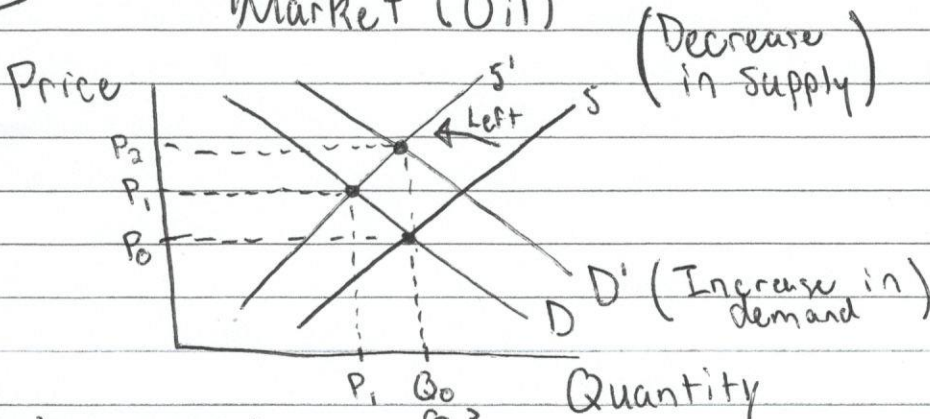 Market (Oil)
(Decrease
in supply)
Price
S'
S
Left
P2
P1
P0
D' (Increase in)
demand
D
P1
Q0
Quantity